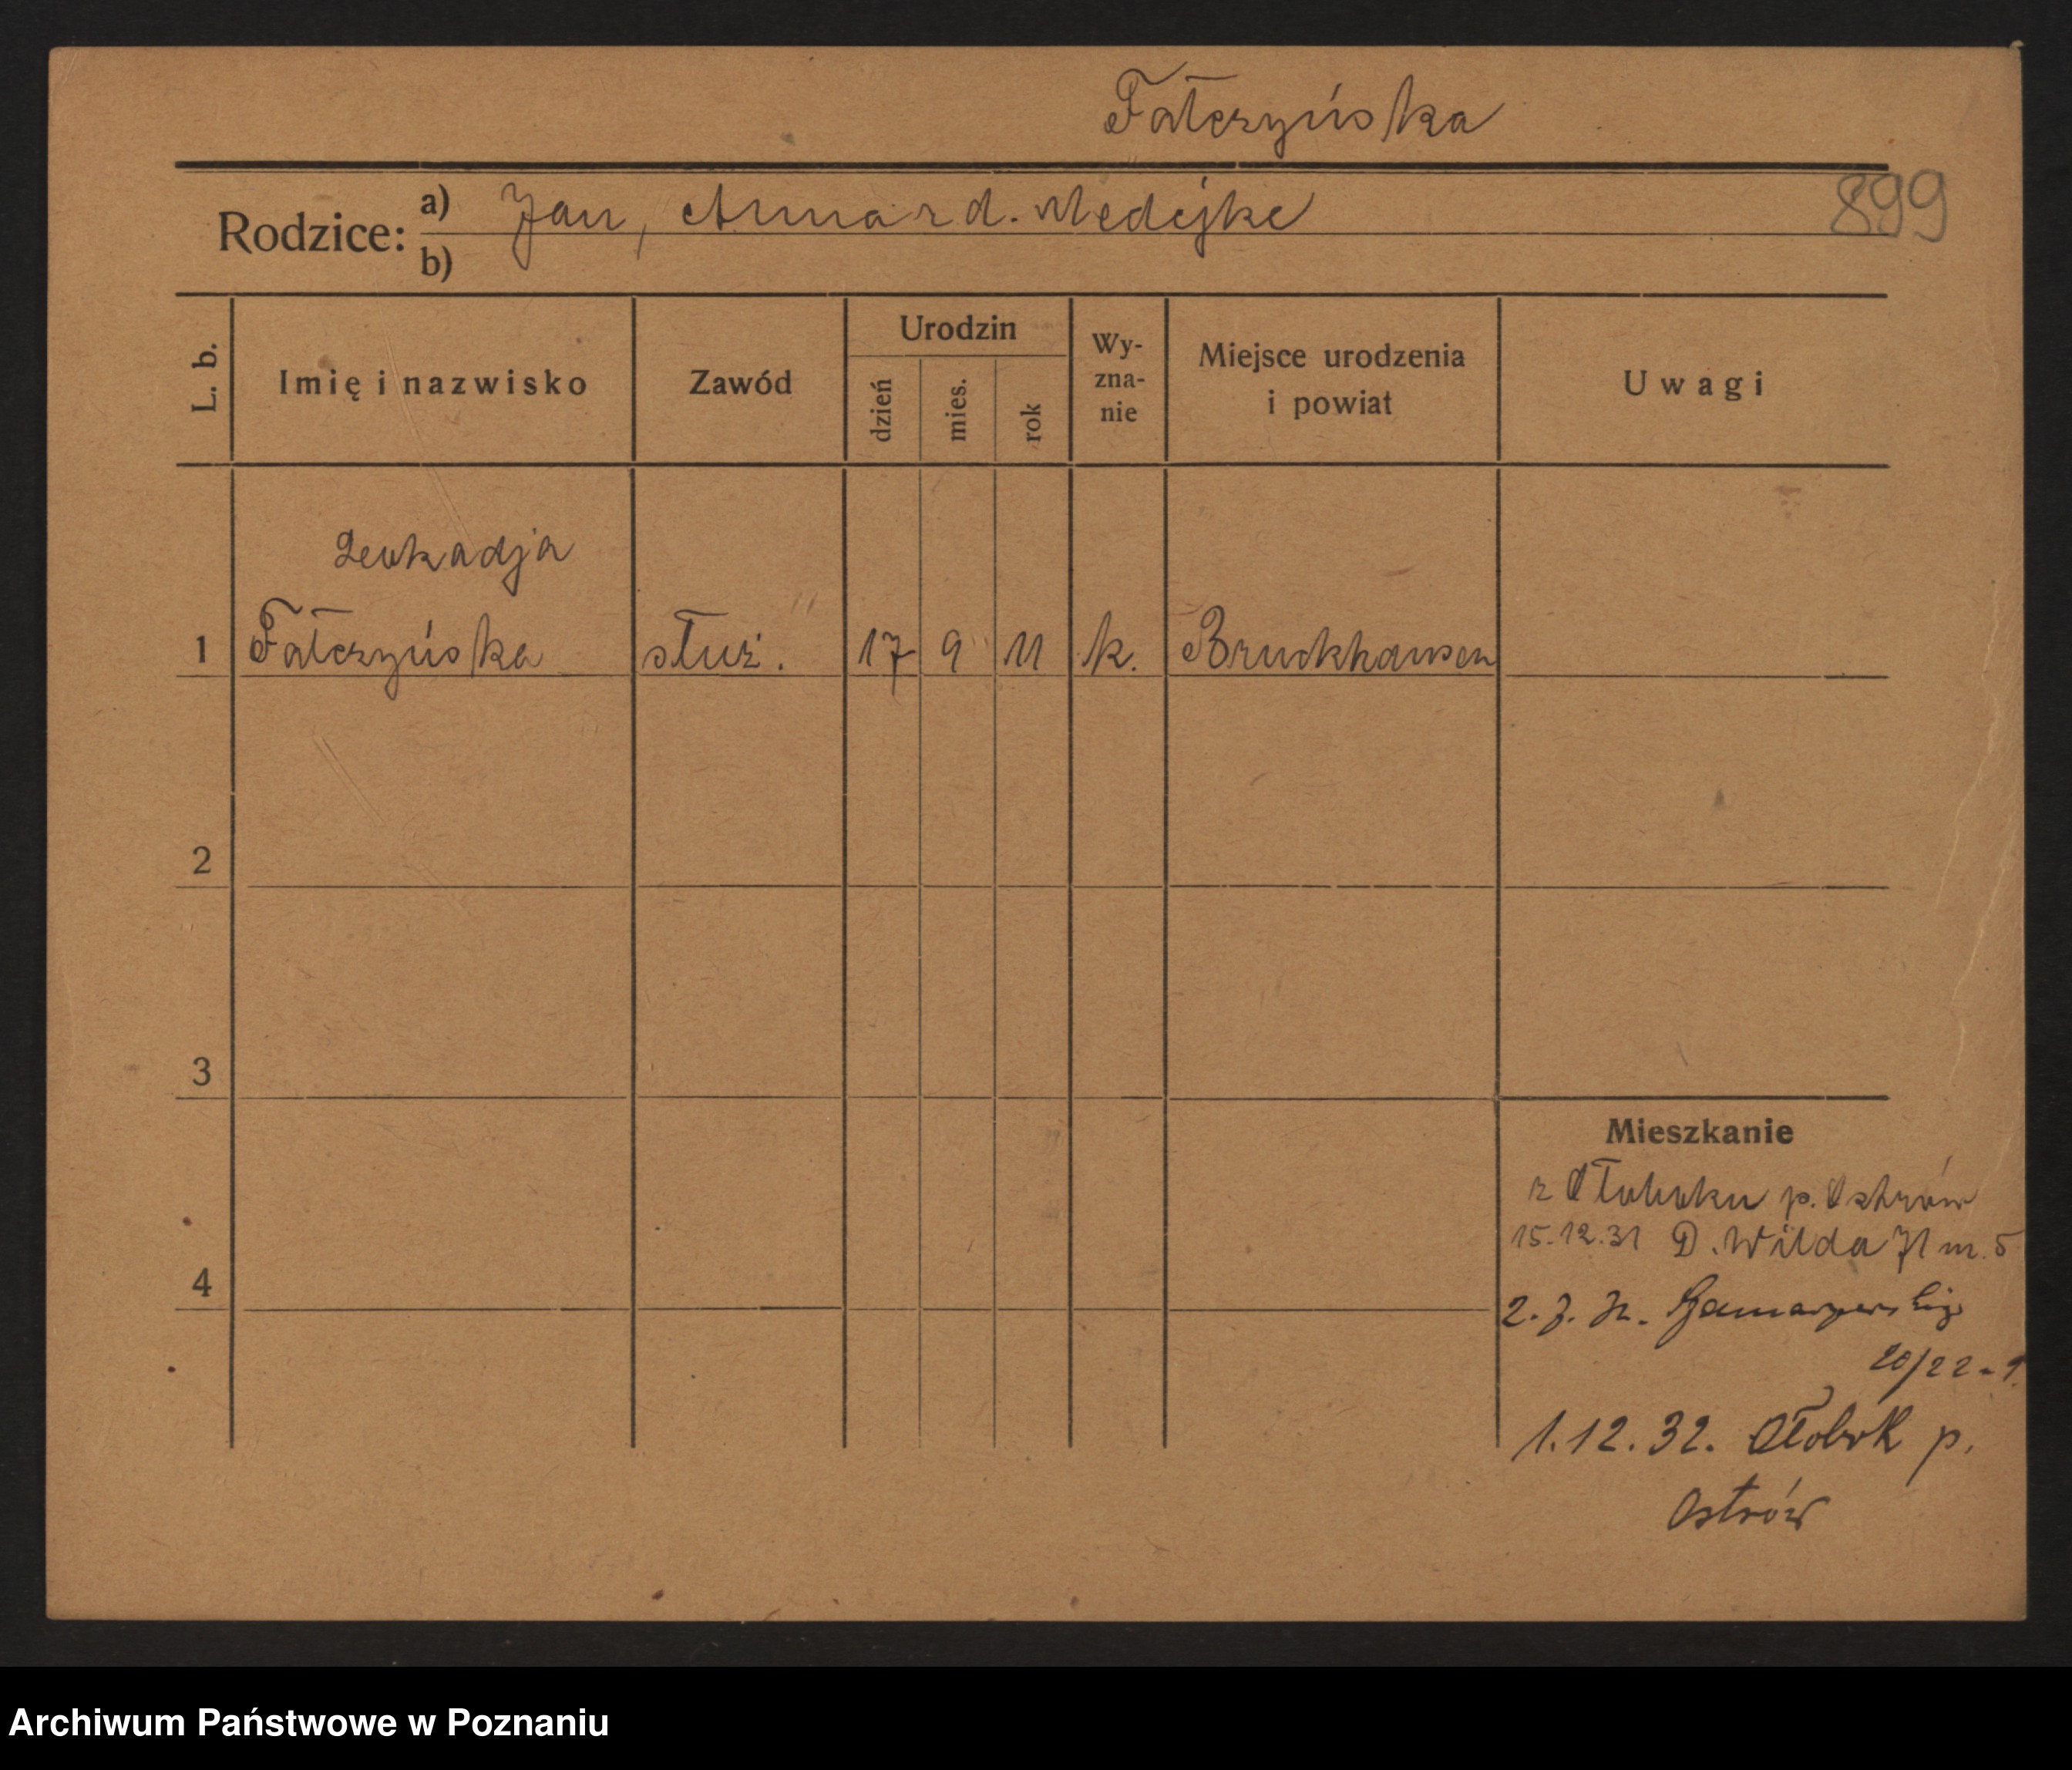 Fałczyńska
Rodzice: a) Jan, Anna z d. Medejke
899
b)
L. b. Imię i nazwisko Zawód Urodzin dzień mies. rok Wy-zna-nie Miejsce urodzenia i powiat Uwagi
Leokadja
1 Fałczyńska służ. 17 9 11 k. Bruckhausen
2
3
Mieszkanie
z Ołoboku p. Ostrów
15.12.31 D. Wilda 71 m. 5
4
20/22-
1.12.32. Ołobok p.
Ostrów
Archiwum Państwowe w Poznaniu